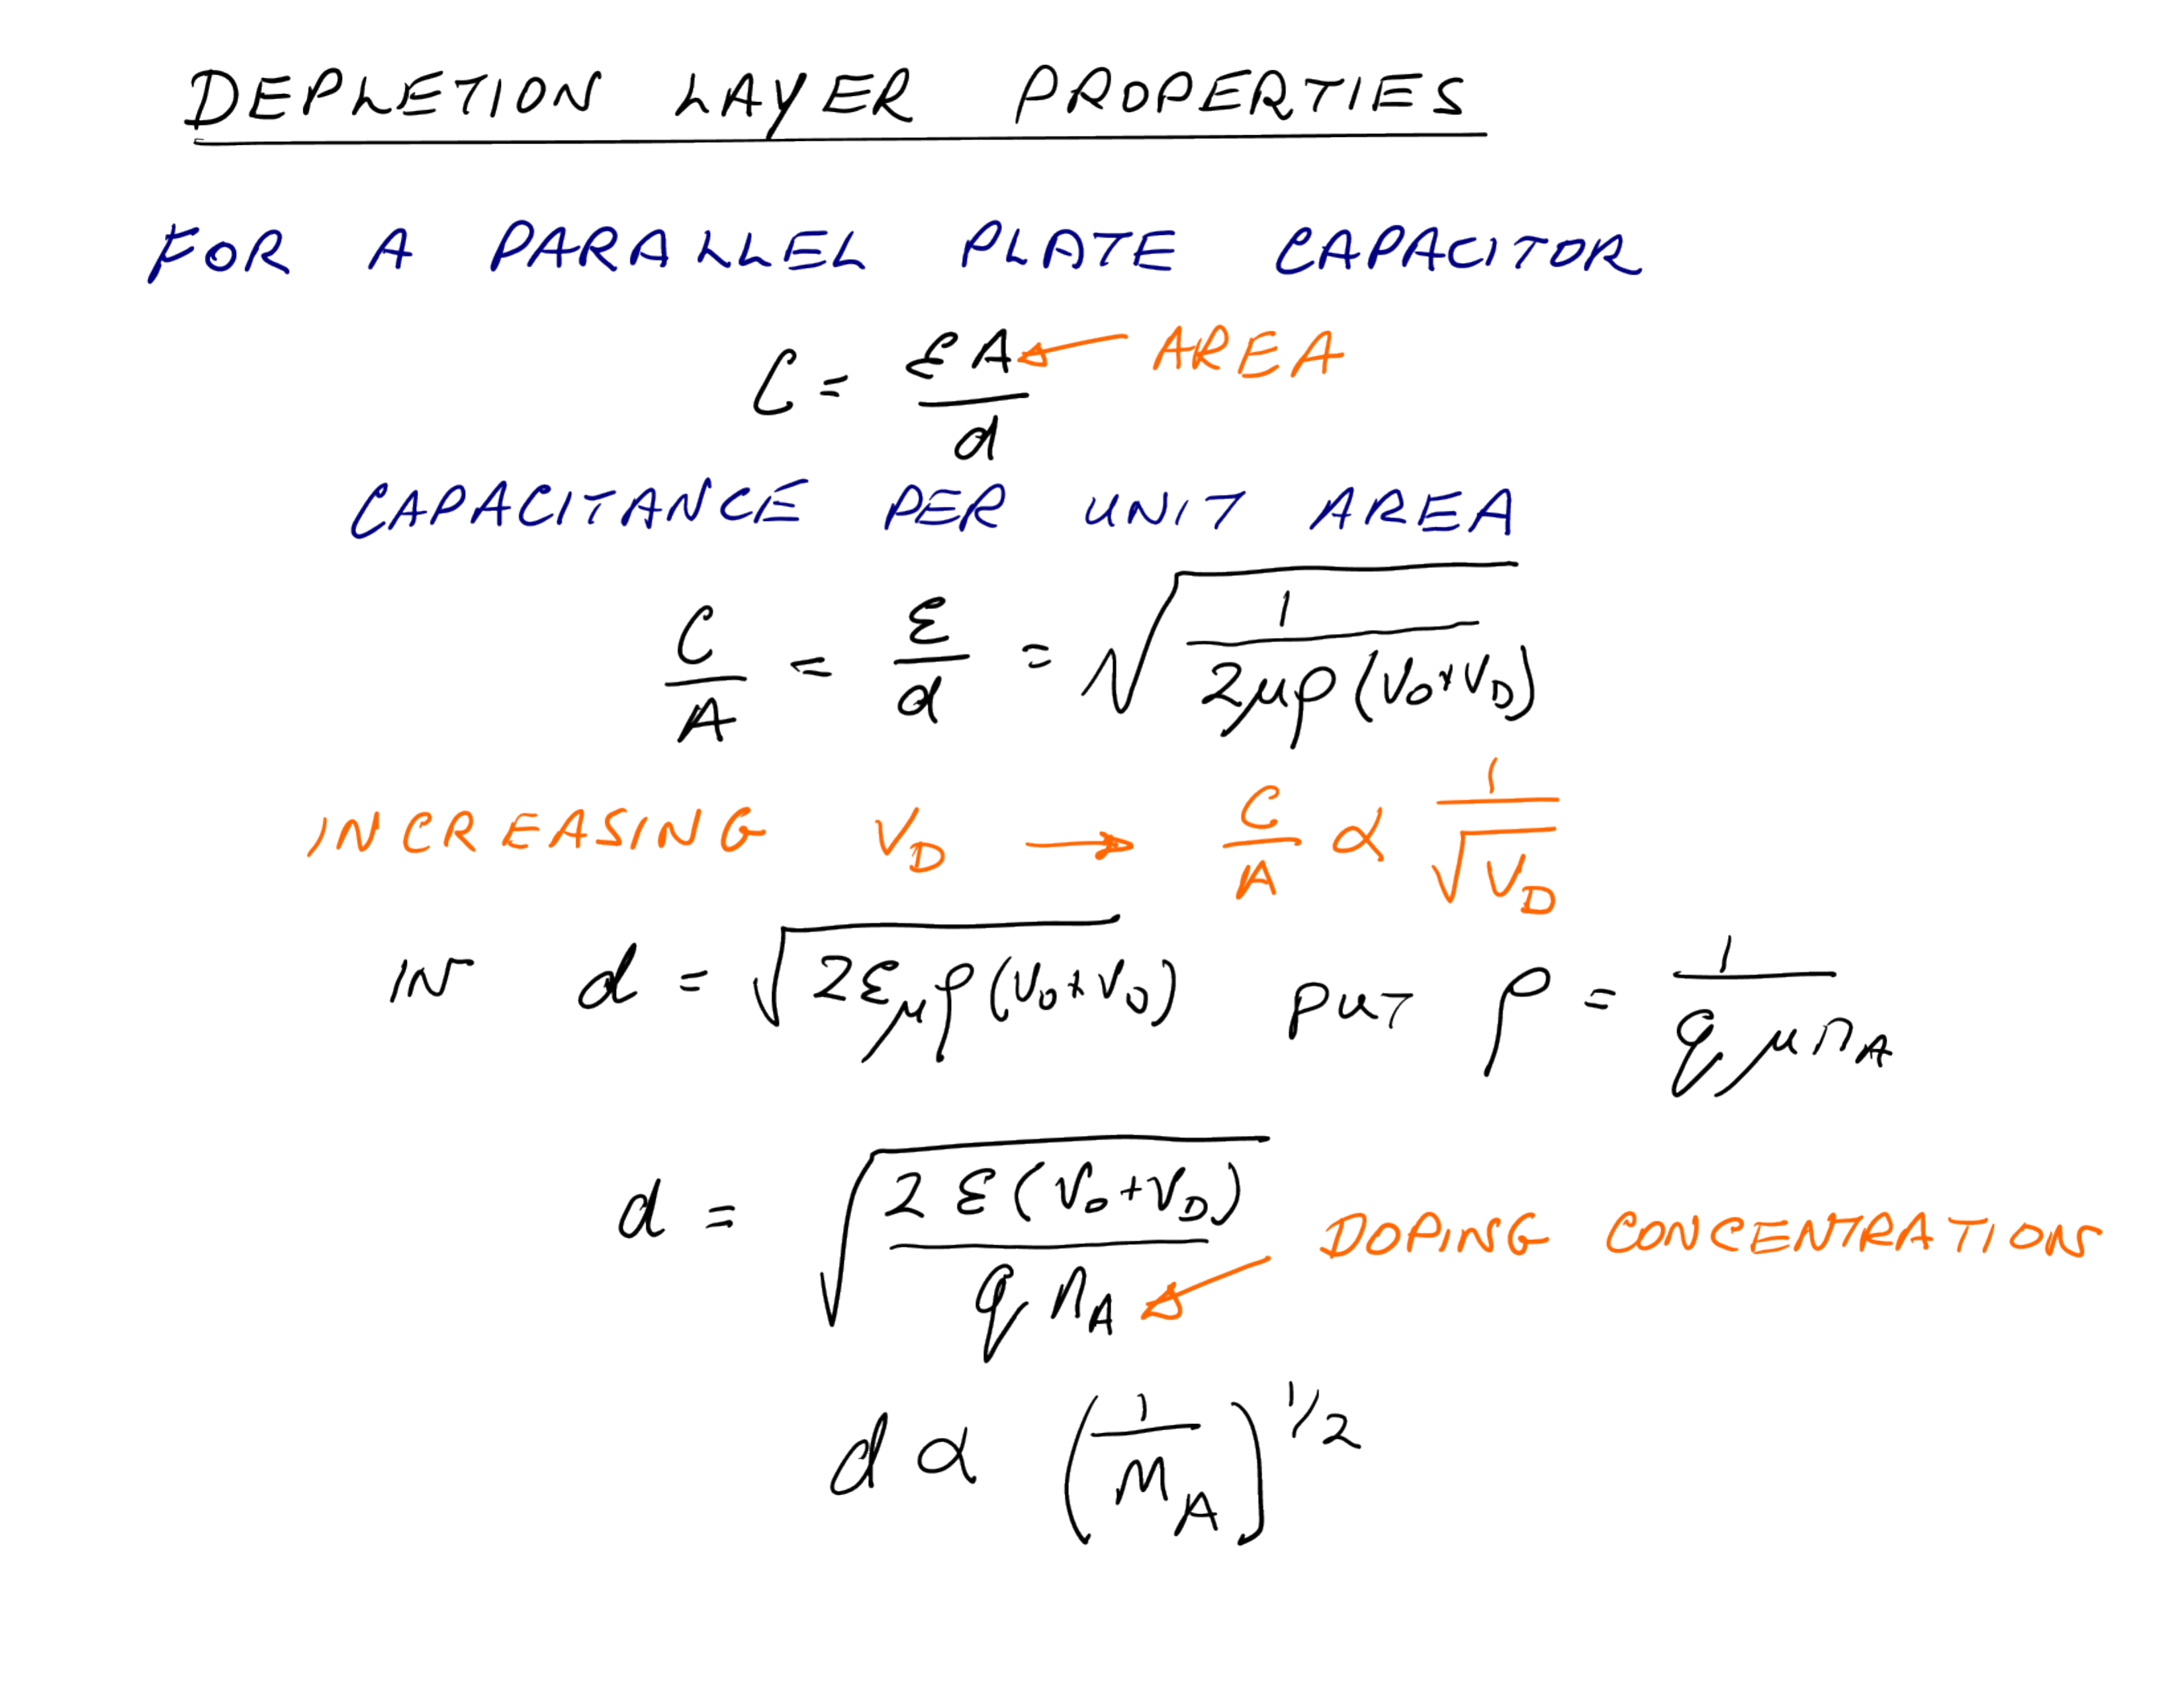 DEPLETION LAYER PROPERTIES
FOR A PARALLEL PLATE CAPACITOR
C = εA/d ← AREA
CAPACITANCE PER UNIT AREA
C/A = ε/d = √(1/(2μρ(V₀+V_D)))
INCREASING V_D → C/A ∝ 1/√V_D
IN d = √(2εμρ(V₀+V_D)) PUT ρ = 1/(qμn_A)
d = √(2ε(V₀+V_D)/(qn_A)) ← DOPING CONCENTRATIONS
d ∝ (1/n_A)^1/2